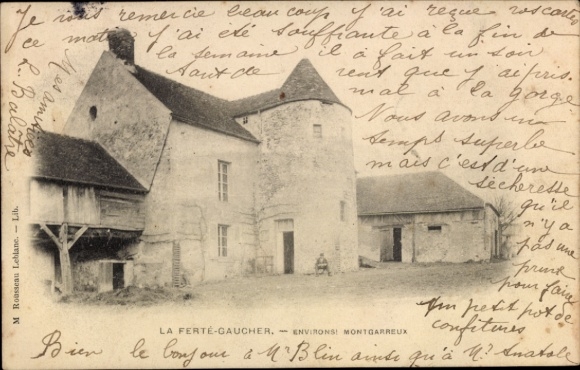 Je vous remercie beaucoup j'ai reçue vos cartes
ce matin j'ai été souffrante à la fin de
la semaine il à fait un soir
tant de vent que j'ai pris
mal à la gorge
Nous avons un
temps superbe
mais c'est d'une
sécheresse
qu'il
n'y a
pas une
prune
pour faire
un petit pot de
confitures
Bien le bonjour à Mr Blin ainsi qu'à Mr Anatole
Mes amitiés
M Rousseau Leblanc. — Lib.
LA FERTÉ-GAUCHER. — ENVIRONS: MONTGARREUX